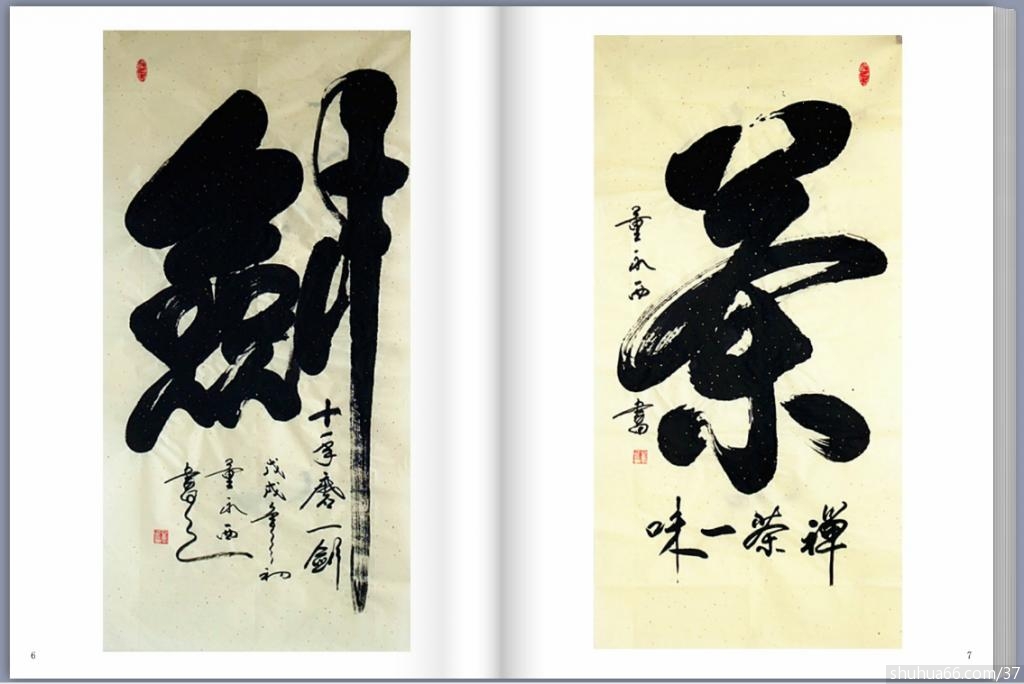 劍
十年磨一劍
戊戌
初
董永西
書
6
茶
禪茶一味
董永西
書
7
shuhua66.com/37